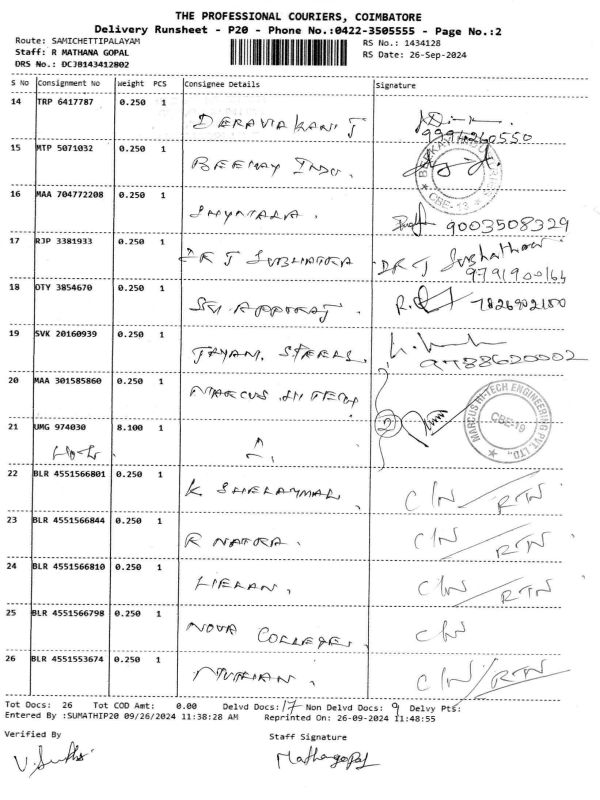 THE PROFESSIONAL COURIERS, COIMBATORE
Delivery Runsheet - P20 - Phone No.:0422-3505555 - Page No.:2
Route: SAMICHETTIPALAYAM
RS No.: 1434128
Staff: R MATHANA GOPAL
RS Date: 26-Sep-2024
DRS No.: DCJB143412802
S No Consignment No Weight PCS Consignee Details Signature
14 TRP 6417787 0.250 1
15 MTP 5071032 0.250 1
BEEMAY INDU.
16 MAA 704772208 0.250 1
9003508329
17 RJP 3381933 0.250 1
DR J SUBHATRA DR J
18 OTY 3854670 0.250 1
19 SVK 20160939 0.250 1
STEELS. 9788620002
20 MAA 301585860 0.250 1
MARCUS HI TECH
MARCUS HI-TECH ENGINEERING PVT. LTD.,
CBE-19
21 UMG 974030 8.100 1
2
22 BLR 4551566801 0.250 1
K C/N / RTN
23 BLR 4551566844 0.250 1
R C/N / RTN
24 BLR 4551566810 0.250 1
C/N / RTN
25 BLR 4551566798 0.250 1
NOVA COLLEGE. C/N
26 BLR 4551553674 0.250 1
C/N / RTN
Tot Docs: 26 Tot COD Amt: 0.00 Delvd Docs: 17 Non Delvd Docs: 9 Delvy Pts:
Entered By :SUMATHIP20 09/26/2024 11:38:28 AM Reprinted On: 26-09-2024 11:48:55
Verified By Staff Signature
Mathagopal